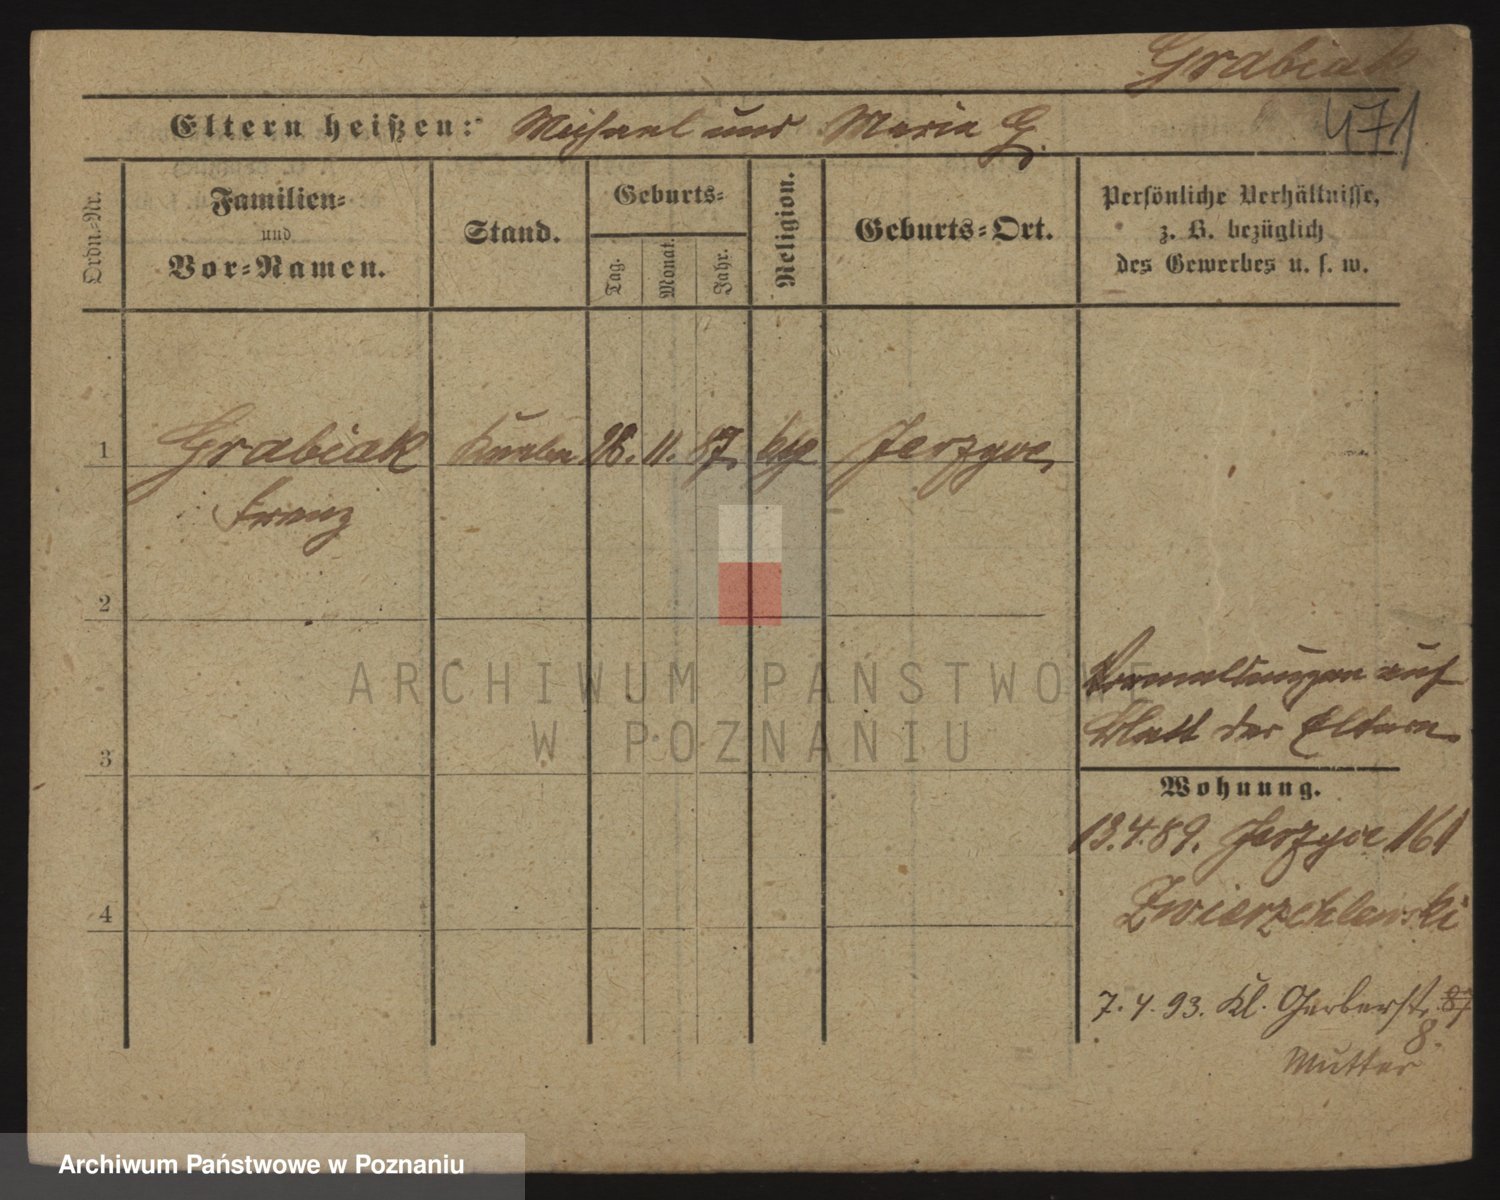 Grabiak
471
Eltern heißen: Michael und Maria G.
Ordn.-Nr.
Familien-
und
Vor-Namen.
Stand.
Geburts-
Tag.
Monat.
Jahr.
Religion.
Geburts-Ort.
Persönliche Verhältnisse,
z. B. bezüglich
des Gewerbes u. s. w.
1 Grabiak 11. 87. Jerzyce,
Franz
2
3
4
ARCHIWUM PAŃSTWOWE
W POZNANIU
Vormeldungen auf
Blatt der Eltern.
Wohnung.
13.4.89. Jerzyce 161
Zwierzchlewski
7.4.93. Kl. Gerberstr. 87
8.
Mutter
Archiwum Państwowe w Poznaniu